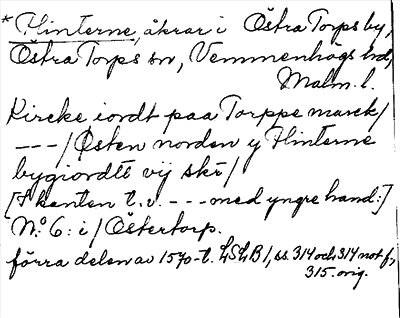 * Hinterne, åkrar i Östra Torps by,
Östra Torps sn, Vemmenhögs hd,
Malm. l.
Kircke iordt paa Torppe marck/
---/Østen norden y Hinterne
bygiordtt vij skr/
[I kanten t.v. --- med yngre hand:]
N:o 6: i/Östertorp.
förra delen av 1570-t. LSLB 1, ss. 314 och 314 not f,
315. orig.